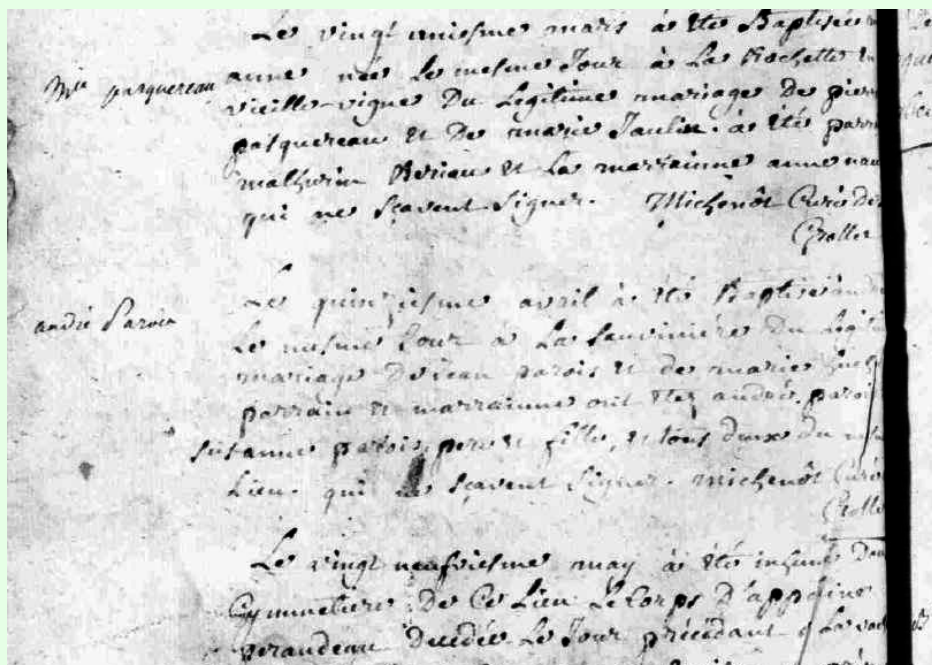 Le vingt uniesme mars à été Baptisée
anne née Le mesme Jour à La Rochette en
vieille-vigne Du Legitime mariage de pierre
pasquereau et De marie Jaulin. à été parrain
mathurin Moriau et La marrainne anne
qui ne sçavent signer. Michenôt Curé des
Crolles
pasquereau
Le quinziesme avril à été Baptisé andré
Le mesme Jour à La Savinière Du Legitime
mariage De Jean parois et de marie
parrain et marrainne ont étez andré parois
susanne parois, pere et fille, et tous deux du mesme
Lieu. qui ne sçavent signer. Michenôt Curé
Crolles
andré Parois
Le vingt neufviesme may à été inhumé dans
Cymmetiere De Ce Lieu Le Corps D'appoline
perandeau Decedée Le Jour précédant